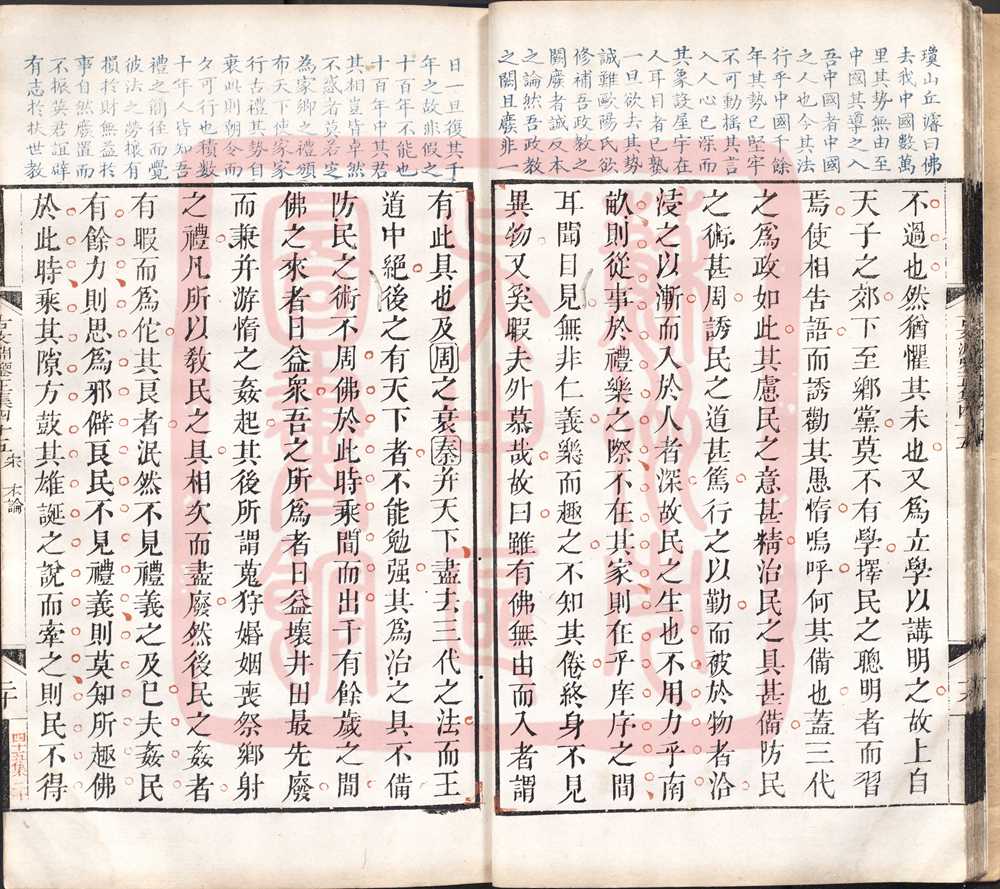 瓊山丘濬曰佛
去我中國數萬
里其勢無由至
中國其導之入
吾中國者中國
之人也今其法
行乎中國千餘
年其勢已堅牢
不可動搖其言
入人心已深而
其象設屋宇在
人耳目者已熟
一旦欲去其勢
誠難歐陽氏欲
修補吾政教之
闕廢者誠反本
之論然吾政教
之闕且廢非一
不過也然猶懼其未也又爲立學以講明之故上自
天子之郊下至鄉黨莫不有學擇民之聰明者而習
焉使相告語而誘勸其愚惰嗚呼何其備也蓋三代
之爲政如此其慮民之意甚精治民之具甚備防民
之術甚周誘民之道甚篤行之以勤而被於物者洽
浸之以漸而入於人者深故民之生也不用力乎南
畝則從事於禮樂之際不在其家則在乎庠序之間
耳聞目見無非仁義樂而趣之不知其倦終身不見
異物又奚暇夫外慕哉故曰雖有佛無由而入者謂
日一旦復其千
年之故非假之
十百年不能也
十百年中其君
其相豈皆卓然
不惑者莫若定
為家鄉之禮頒
布天下使家家
行古禮其勢自
衰此則朝令而
夕可行也積數
十年人皆知吾
禮之簡徑而覺
彼法之勞攘有
損於財無益於
事自然廢置而
不振英君誼辟
有志於扶世教
有此具也及周之衰秦并天下盡去三代之法而王
道中絕後之有天下者不能勉强其爲治之具不備
防民之術不周佛於此時乘間而出千有餘歲之間
佛之來者日益衆吾之所爲者日益壞井田最先廢
而兼并游惰之姦起其後所謂蒐狩婚姻喪祭鄉射
之禮凡所以敎民之具相次而盡廢然後民之姦者
有暇而爲佗其良者泯然不見禮義之及已夫姦民
有餘力則思爲邪僻良民不見禮義則莫知所趣佛
於此時乘其隙方鼓其雄誕之說而牽之則民不得
古文淵鑒正集四十五 宋 本論
二十